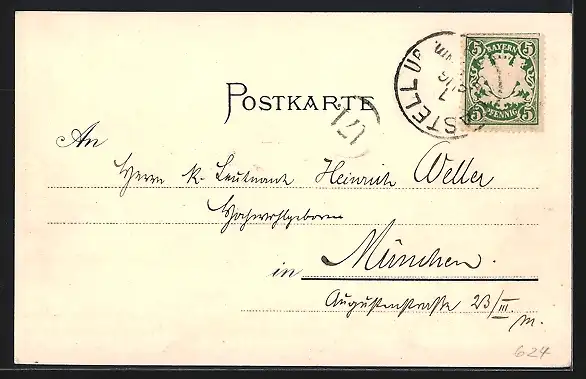 5 BAYERN 5
5 PFENNIG 5
CASTELL
7
POSTKARTE
An
Herrn k. Leutnant Heinrich Weller
Hochwohlgeboren
in München.
Augustenstraße 23/III.
m.
624